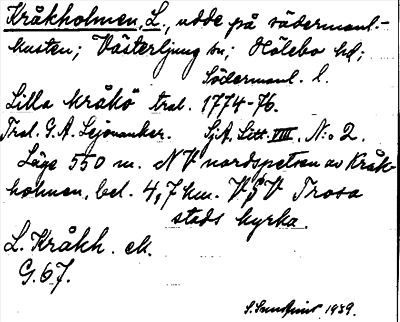 Kråkholmen, L., udde på södermanl.-
kusten; Västerljung sn; Hölebo hd;
Södermanl. l.
Lilla Kråkö tral. 1774-76.
Tral. G. A. Leijonanker. SjA. Litt. VIII, N:o 2.
Läge 550 m. NV nordspetsen av Kråk-
holmen, bel. 4,7 km. VSV Trosa
stads kyrka.
L. Kråkh. ek.
G. 67.
1939.